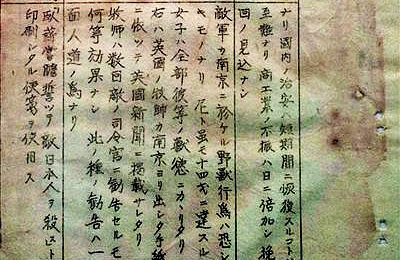 ナリ国内ノ治安ハ短期間ニ恢復スルコト
至難ナリ商工業ノ不振ハ日ニ倍加シ挽
回ノ見込ナシ
敵軍カ南京ニ於ケル野獣行為ハ恐シ
キモノナリ 尼ト雖モ十四才ニ達スル
女子ハ全部彼等ノ獣慾ニカヽリタリ
右ハ英国ノ牧師カ南京ヨリ出シタ手紙
ニ依ツテ英国新聞ニ掲載サレタリ
牧師ハ数回敵ノ司令官ニ勧告セルモ
何等効果ナシ 此ノ種ノ勧告ハ一
面人道ノ為ナリ
臥薪嘗膽誓ツテ敵日本人ヲ殺ス
印刷シタル便箋ヲ使用ス